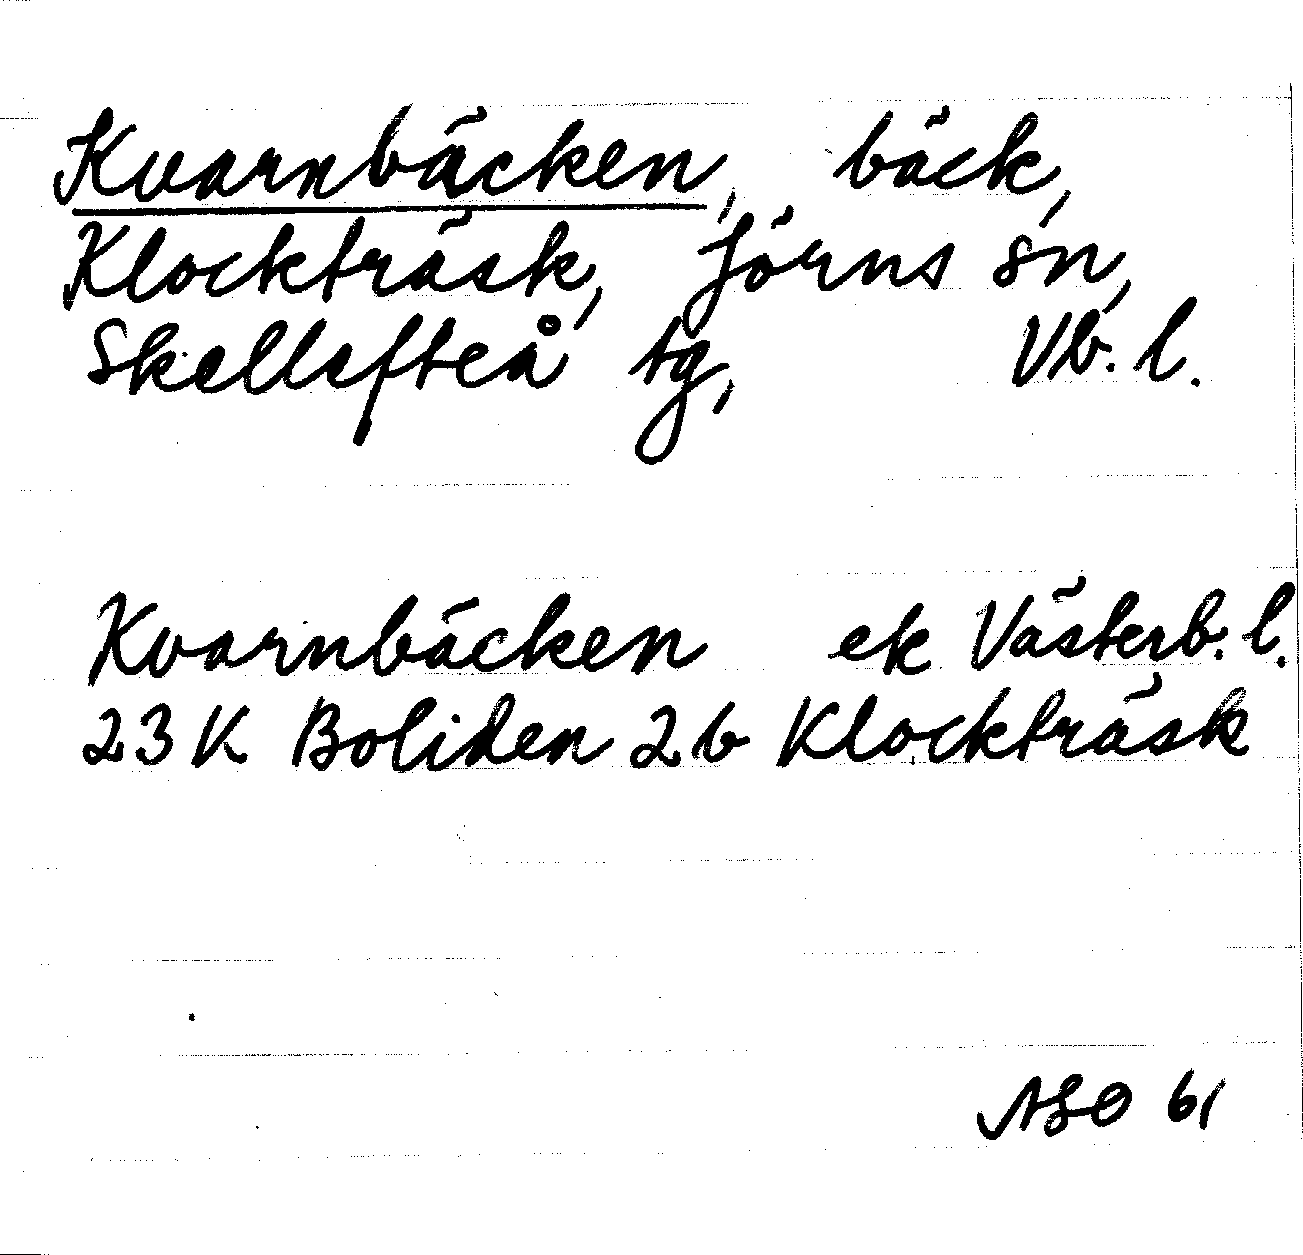 Kvarnbäcken, bäck,
Klockträsk, Jörns sn,
Skellefteå tg, Vb. l.
Kvarnbäcken ek Västerb. l.
23 K Boliden 2 b Klockträsk
61